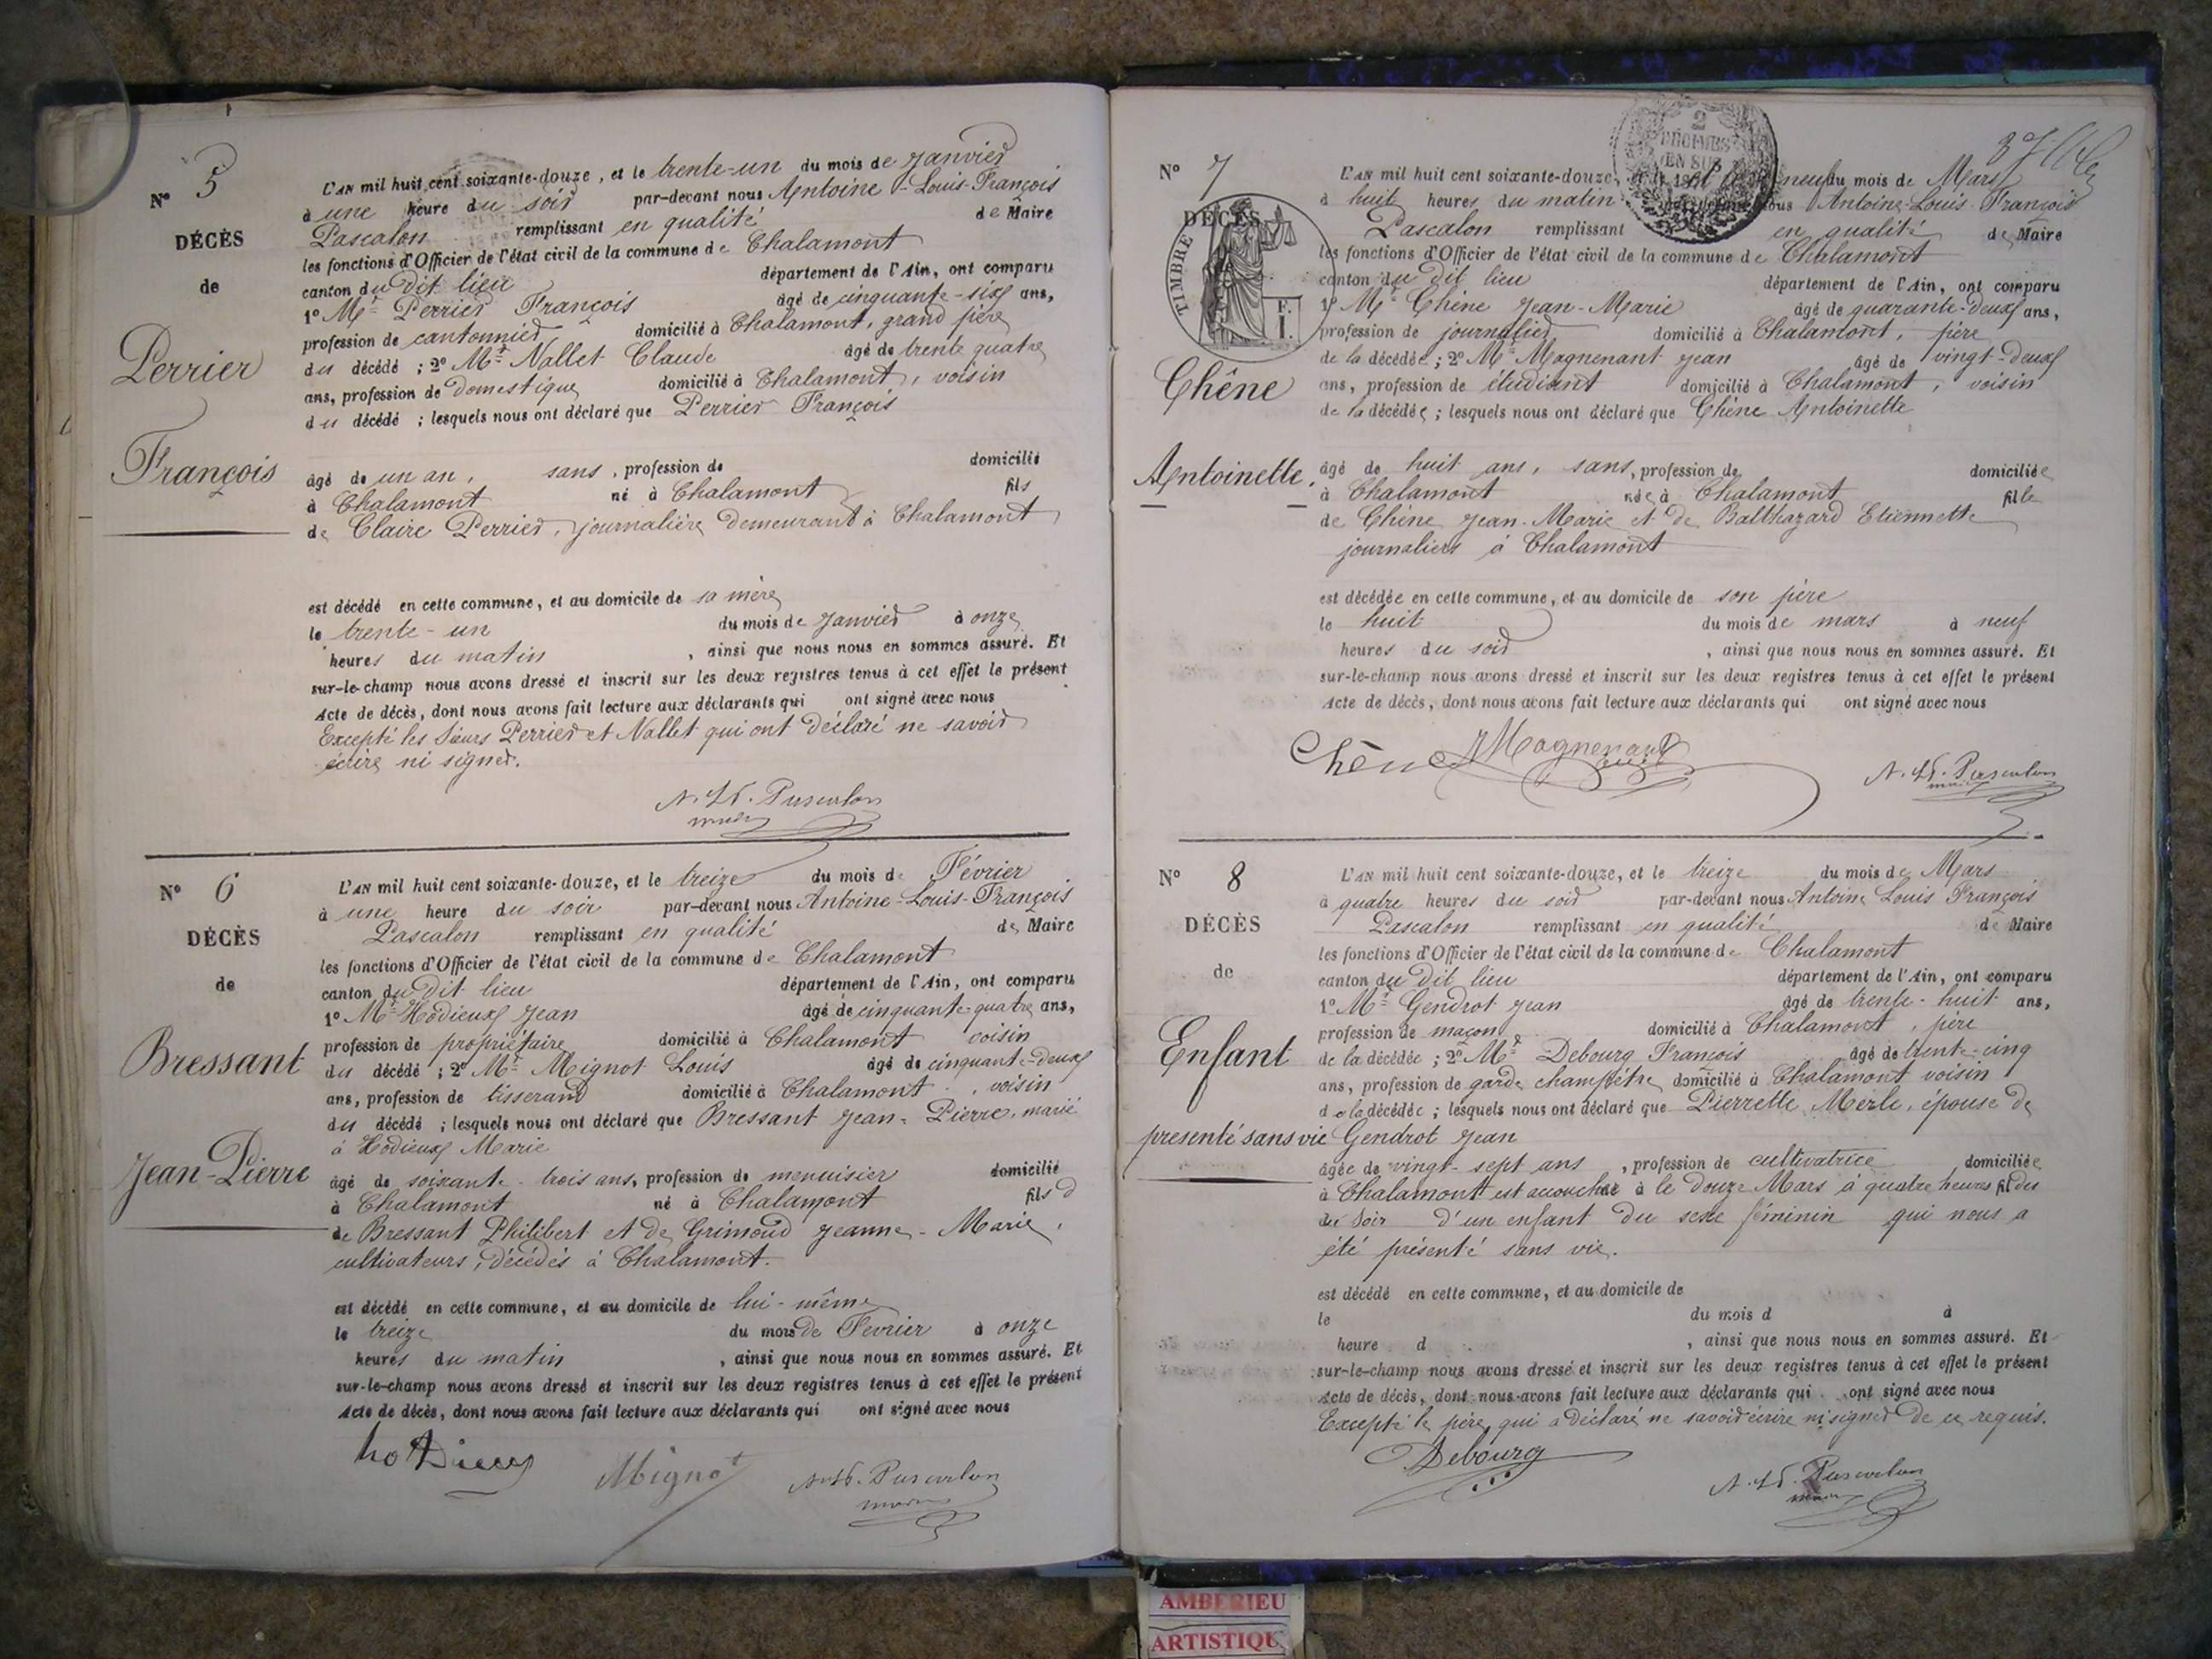 N° 5
DÉCÈS
de
Perrier
François
L'AN mil huit cent soixante-douze, et le trente-un du mois de Janvier
à une heure du soir par-devant nous Antoine-Louis-François
Pascalon remplissant en qualité de Maire
les fonctions d'Officier de l'état civil de la commune de Chalamont
canton du dit lieu département de l'Ain, ont comparu
1° Mr Perrier François âgé de cinquante-six ans,
profession de cantonnier domicilié à Chalamont, grand père
du décédé ; 2° Mr Nallet Claude âgé de trente quatre
ans, profession de domestique domicilié à Chalamont, voisin
du décédé ; lesquels nous ont déclaré que Perrier François
âgé de un an, sans, profession de domicilié
à Chalamont né à Chalamont fils
de Claire Perrier, journalière demeurant à Chalamont
est décédé en cette commune, et au domicile de sa mère
le trente-un du mois de Janvier à onze
heures du matin, ainsi que nous nous en sommes assuré. Et
sur-le-champ nous avons dressé et inscrit sur les deux registres tenus à cet effet le présent
Acte de décès, dont nous avons fait lecture aux déclarants qui ont signé avec nous
Excepté les Sieurs Perrier et Nallet qui ont déclaré ne savoir
écrire ni signer.
Pascalon
maire
N° 6
DÉCÈS
de
Bressant
Jean-Pierre
L'AN mil huit cent soixante-douze, et le treize du mois de Février
à une heure du soir par-devant nous Antoine-Louis-François
Pascalon remplissant en qualité de Maire
les fonctions d'Officier de l'état civil de la commune de Chalamont
canton du dit lieu département de l'Ain, ont comparu
1° Mr Hodieux Jean âgé de cinquante-quatre ans,
profession de propriétaire domicilié à Chalamont voisin
du décédé ; 2° Mr Mignot Louis âgé de cinquante-deux
ans, profession de tisserand domicilié à Chalamont, voisin
du décédé ; lesquels nous ont déclaré que Bressant Jean-Pierre, marié
à Hodieux Marie
âgé de soixante-trois ans, profession de menuisier domicilié
à Chalamont né à Chalamont fils d
de Bressant Philibert et de Grimoud Jeanne-Marie,
cultivateurs, décédés à Chalamont.
est décédé en cette commune, et au domicile de lui-même
le treize du mois de Fevrier à onze
heures du matin, ainsi que nous nous en sommes assuré. Et
sur-le-champ nous avons dressé et inscrit sur les deux registres tenus à cet effet le présent
Acte de décès, dont nous avons fait lecture aux déclarants qui ont signé avec nous
hoDieux Mignot Pascalon
maire
N° 7
DÉCÈS
TIMBRE
F. I.
2 DÉCIMES EN SUS
37
Chêne
Antoinette.
L'AN mil huit cent soixante-douze, et le neuf du mois de Mars
à huit heures du matin par-devant nous Antoine-Louis-François
Pascalon remplissant en qualité de Maire
les fonctions d'Officier de l'état civil de la commune de Chalamont
canton du dit lieu département de l'Ain, ont comparu
1° Mr Chêne Jean-Marie âgé de quarante-deux ans,
profession de journalier domicilié à Chalamont, père
de la décédée ; 2° Mr Magnenant Jean âgé de vingt-deux
ans, profession de étudiant domicilié à Chalamont, voisin
de la décédée ; lesquels nous ont déclaré que Chêne Antoinette
âgé de huit ans, sans, profession de domiciliée
à Chalamont née à Chalamont fille
de Chêne Jean-Marie et de Balthazard Etiennette
journaliers à Chalamont
est décédée en cette commune, et au domicile de son père
le huit du mois de mars à neuf
heures du soir, ainsi que nous nous en sommes assuré. Et
sur-le-champ nous avons dressé et inscrit sur les deux registres tenus à cet effet le présent
Acte de décès, dont nous avons fait lecture aux déclarants qui ont signé avec nous
Chêne Magnenant Pascalon
maire
N° 8
DÉCÈS
de
Enfant
presenté sans vie
L'AN mil huit cent soixante-douze, et le treize du mois de Mars
à quatre heures du soir par-devant nous Antoine Louis François
Pascalon remplissant en qualité de Maire
les fonctions d'Officier de l'état civil de la commune de Chalamont
canton du dit lieu département de l'Ain, ont comparu
1° Mr Gendrot Jean âgé de trente-huit ans,
profession de maçon domicilié à Chalamont, père
de la décédée ; 2° Mr Debourg François âgé de trente-cinq
ans, profession de garde champêtre domicilié à Chalamont voisin
de la décédée ; lesquels nous ont déclaré que Pierrette Merle, épouse de
Gendrot Jean
âgée de vingt-sept ans, profession de cultivatrice domiciliée
à Chalamont est accouchée à le douze Mars à quatre heures fil du
du soir d'un enfant du sexe féminin qui nous a
été présenté sans vie.
est décédé en cette commune, et au domicile de
le du mois d à
heure d , ainsi que nous nous en sommes assuré. Et
sur-le-champ nous avons dressé et inscrit sur les deux registres tenus à cet effet le présent
Acte de décès, dont nous avons fait lecture aux déclarants qui ont signé avec nous
Excepté le père, qui a déclaré ne savoir écrire ni signer de ce requis.
Debourg Pascalon
maire
AMBERIEU
ARTISTIQU